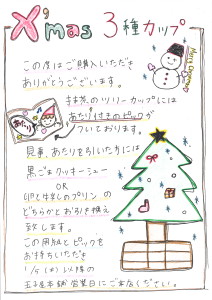 X'mas 3種カップ
この度はご購入いただき
ありがとうございます。
Merry Christmas
抹茶のツリーカップには
あたり付きのピックが
ついております。
あたり
見事、あたりを引いた方には
黒ごまクッキーシュー
OR
卵と牛乳のプリンの
どちらかとお引き換え
致します。
この用紙とピックを
お持ちいただき
1/5(木)以降の
玉子屋本舗営業日にご来店ください。